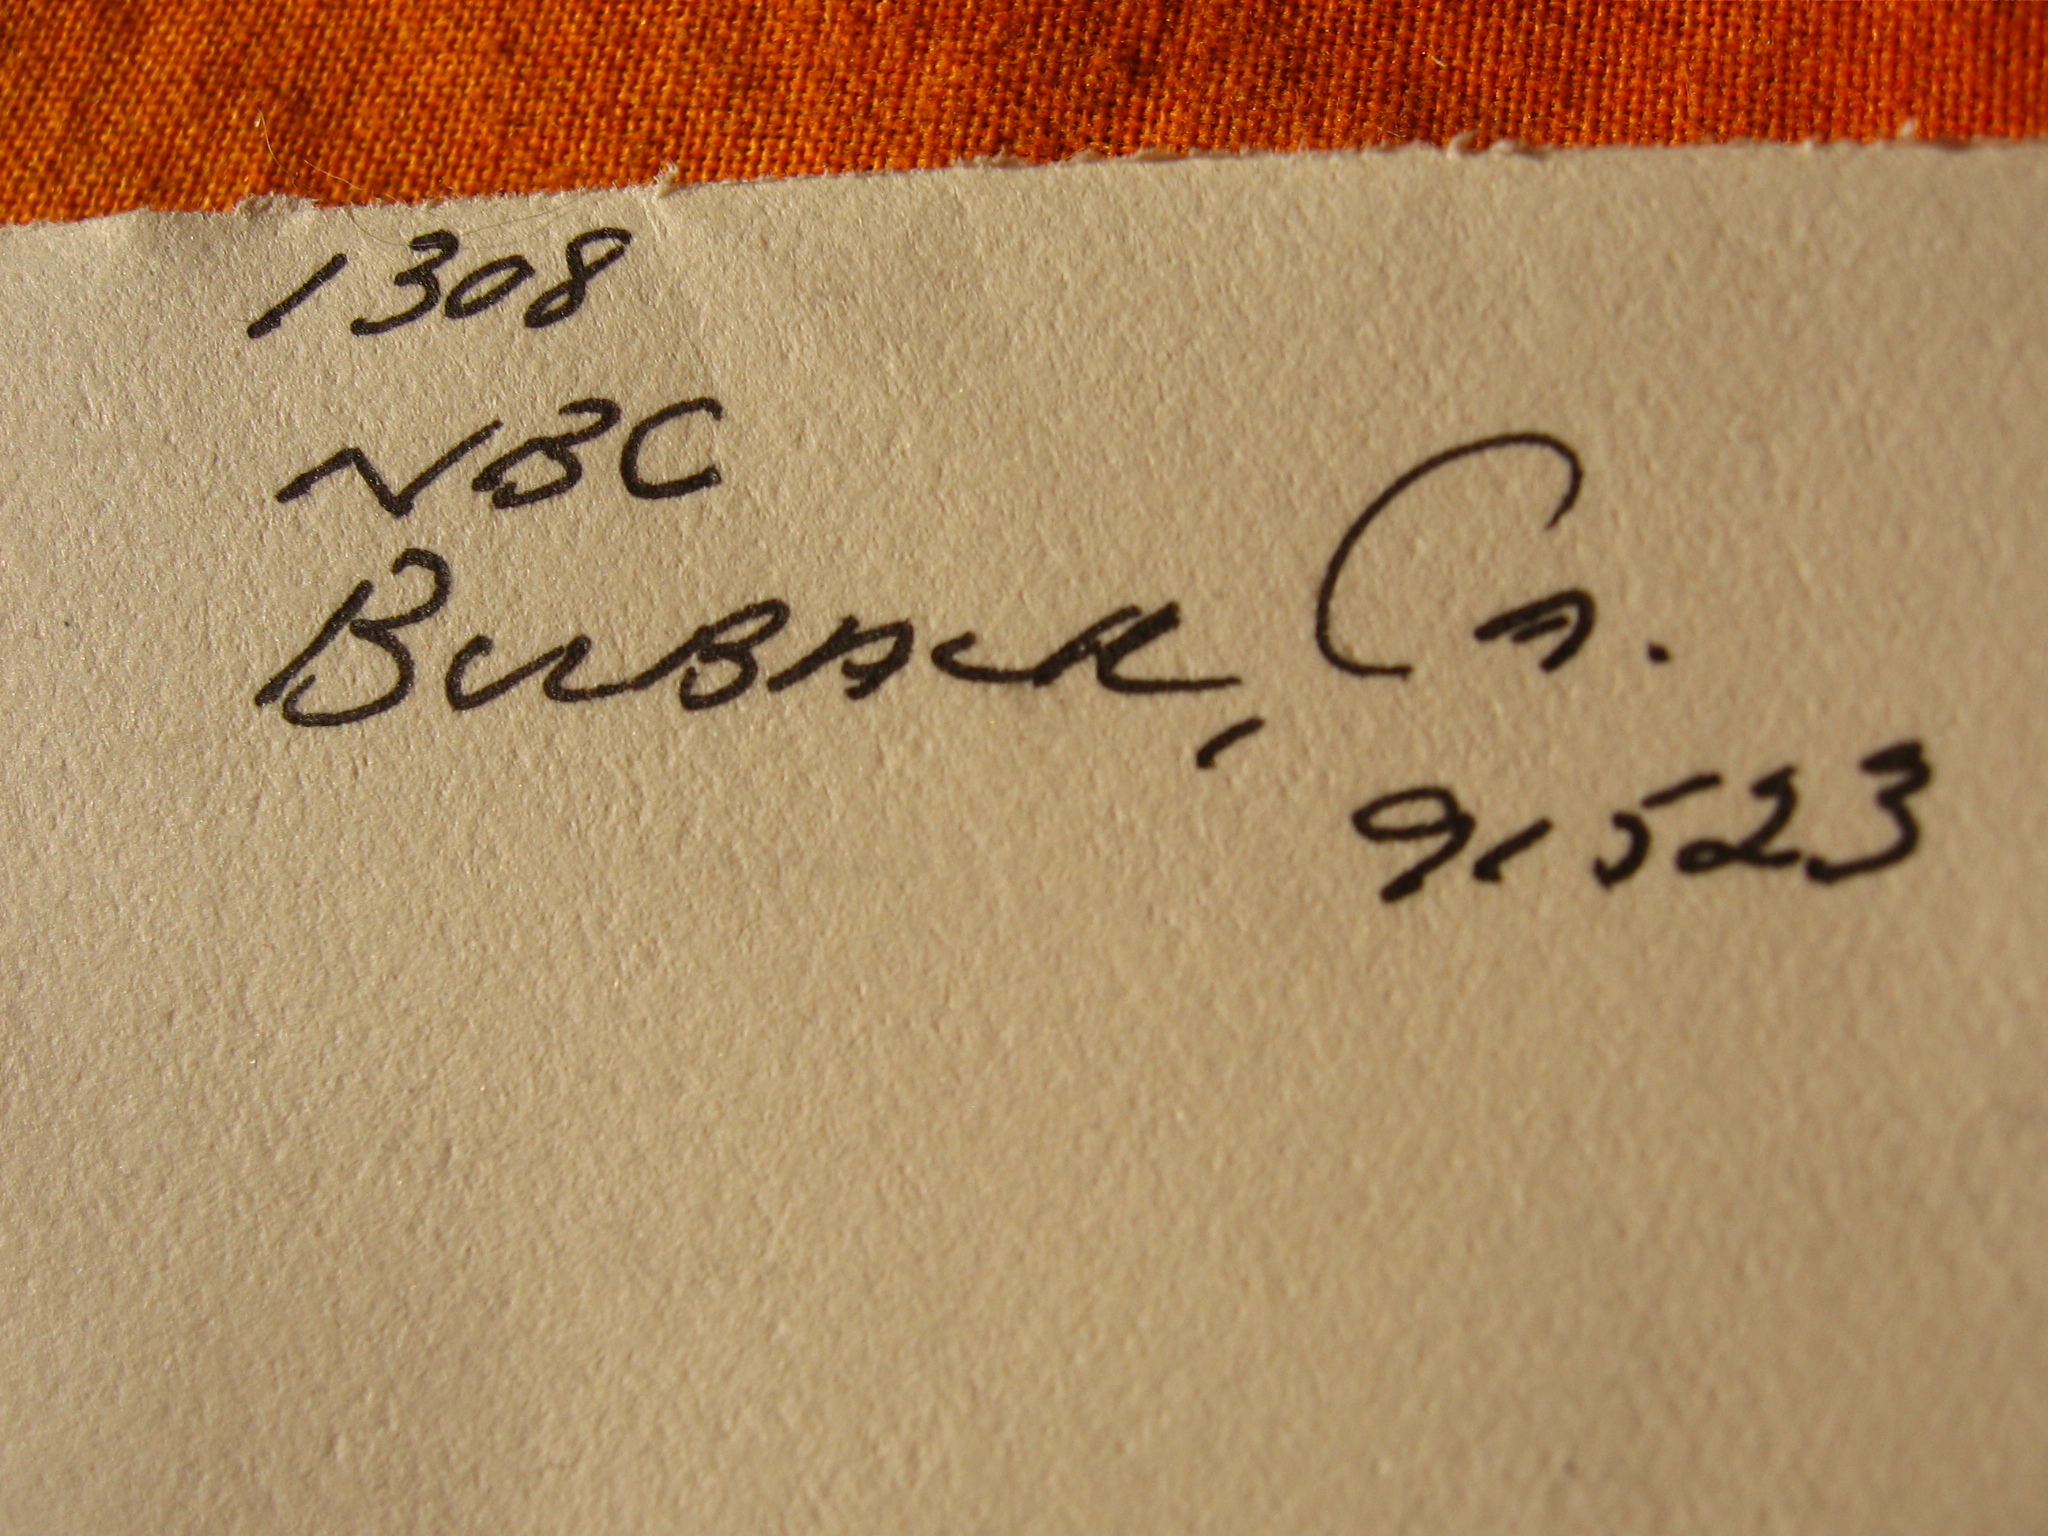 1308
NBC
Burbank, Ca.
91523